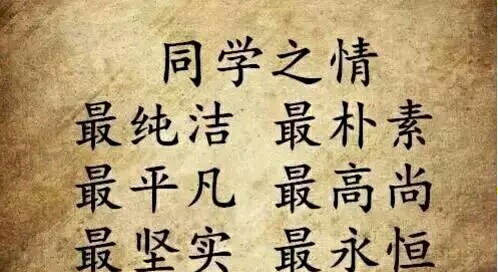 同学之情
最纯洁 最朴素
最平凡 最高尚
最坚实 最永恒